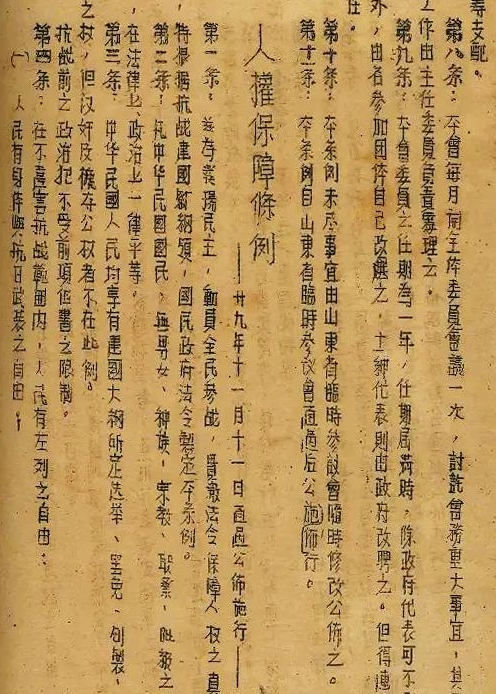 等支配。
第八条：本會每月開全体委員會議一次，討論會務重大事宜，其
工作由主任委員負責處理之。
第九条：本會委員之任期為一年，任期屆滿時，除政府代表可不
外，由各參加團体自己改選之，士紳代表則由政府改聘之。但得連
任。
第十条：本条例未尽事宜由山東省臨時參議會隨時修改公佈之。
第十一条：本条例自山東省臨時參議會通過后公佈施行。
人權保障條例
——廿九年十一月十一日通過公佈施行——
第一条：為發揚民主，動員全民參战，貫澈法令保障人权之真
特根据抗战建國綱領，國民政府法令製定本条例。
第二条：凡中华民國國民，無男女、种族、宗教、职業、階級之
在法律上、政治上一律平等。
第三条：中华民國人民均享有建國大綱所定选举、罢免、创製、
之权，但汉奸及褫夺公权者不在此例。
抗战前之政治犯不受前項但書之限制。
第四条：在不妨害抗战範圍内，人民有左列之自由：
(一)人民有身体與抗日武装之自由。